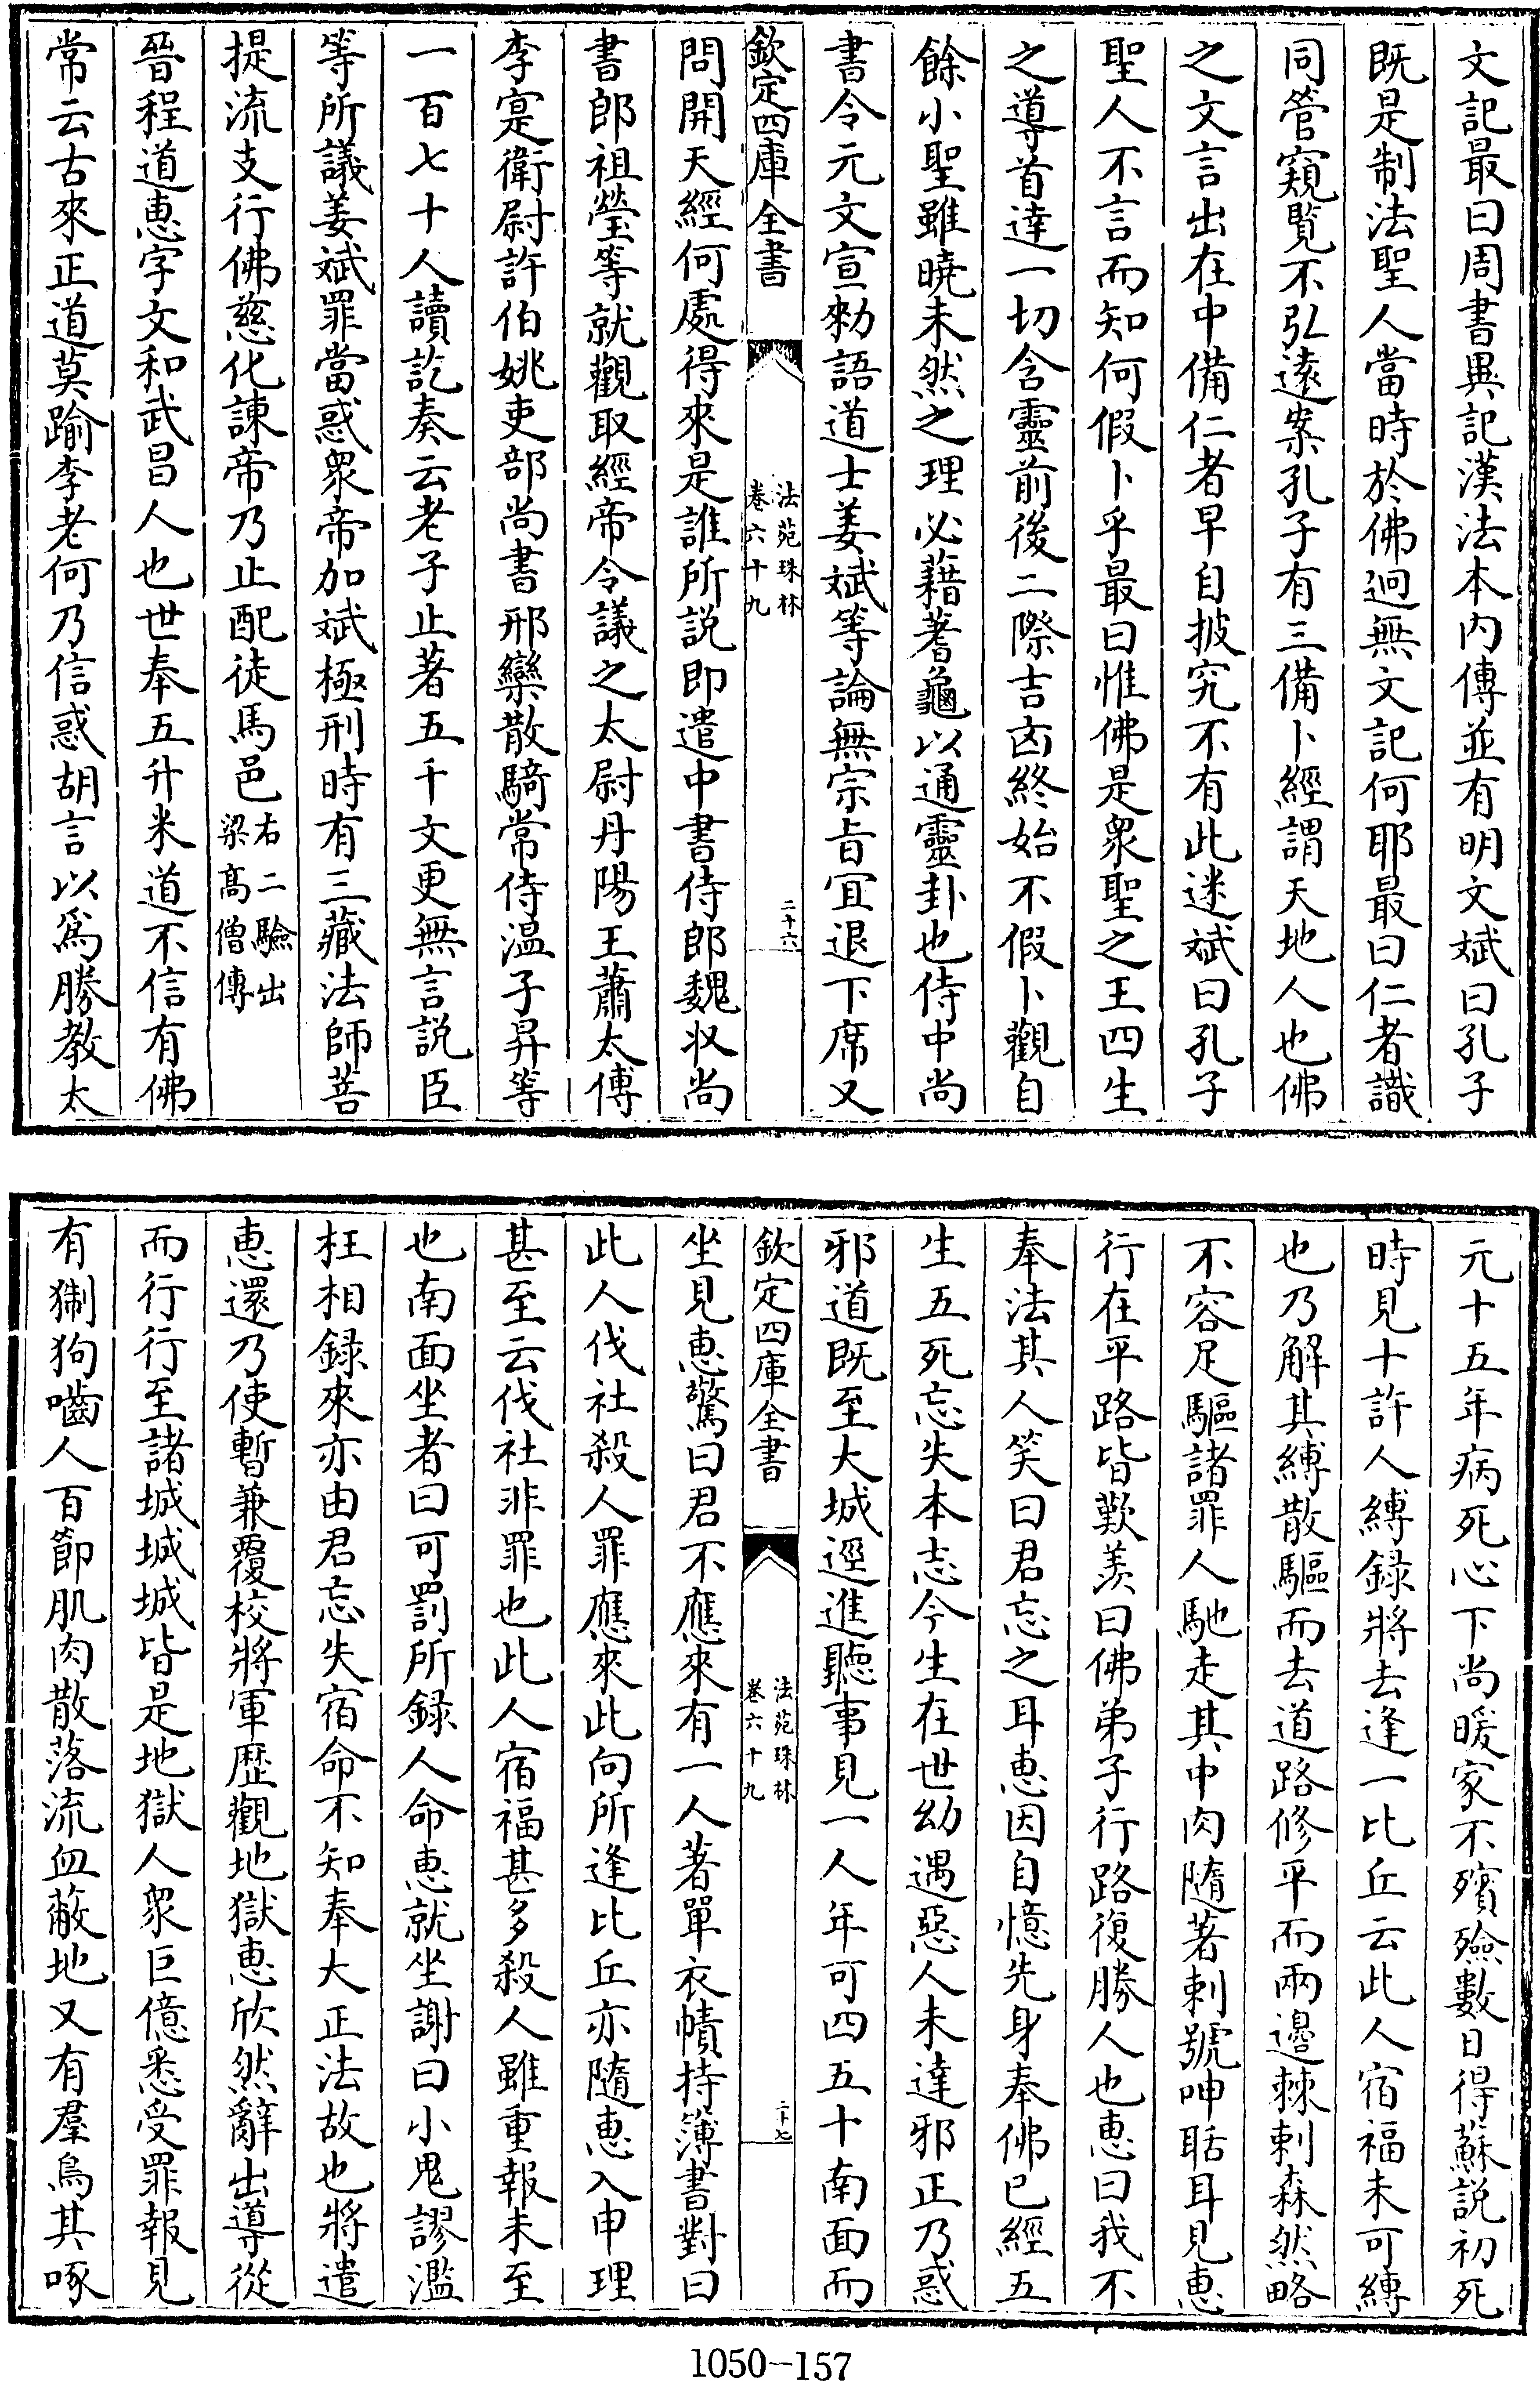 文記最曰周書異記漢法本内傳並有明文斌曰孔子
既是制法聖人當時於佛迥無文記何耶最曰仁者識
同管窺覽不弘遠案孔子有三備卜經謂天地人也佛
之文言出在中備仁者早自披究不有此迷斌曰孔子
聖人不言而知何假卜乎最曰惟佛是衆聖之王四生
之導首達一切含靈前後二際吉凶終始不假卜觀自
餘小聖雖曉未然之理必藉蓍龜以通靈卦也侍中尚
書令元文宣勑語道士姜斌等論無宗旨宜退下席又
欽定四庫全書
法苑珠林
卷六十九
二十六
問開天經何處得來是誰所説即遣中書侍郎魏收尚
書郎祖瑩等就觀取經帝令議之太尉丹陽王蕭太傅
李寔衛尉許伯姚吏部尚書邢欒散騎常侍温子昇等
一百七十人讀訖奏云老子止著五千文更無言説臣
等所議姜斌罪當惑衆帝加斌極刑時有三藏法師菩
提流支行佛慈化諫帝乃止配徒馬邑右二驗出梁髙僧傳
晉程道惠字文和武昌人也世奉五升米道不信有佛
常云古來正道莫踰李老何乃信惑胡言以爲勝教太
元十五年病死心下尚暖家不殯殮數日得蘇説初死
時見十許人縛録將去逢一比丘云此人宿福未可縛
也乃解其縛散驅而去道路修平而兩邊棘刺森然略
不容足驅諸罪人馳走其中肉隨著刺號呻聒耳見惠
行在平路皆歎羨曰佛弟子行路復勝人也惠曰我不
奉法其人笑曰君忘之耳惠因自憶先身奉佛已經五
生五死忘失本志今生在世幼遇惡人未達邪正乃惑
邪道既至大城逕進聽事見一人年可四五十南面而
欽定四庫全書
法苑珠林
卷六十九
二十七
坐見惠驚曰君不應來有一人著單衣幘持簿書對曰
此人伐社殺人罪應來此向所逢比丘亦隨惠入申理
甚至云伐社非罪也此人宿福甚多殺人雖重報未至
也南面坐者曰可罰所録人命惠就坐謝曰小鬼謬濫
枉相録來亦由君忘失宿命不知奉大正法故也將遣
惠還乃使暫兼覆校將軍歴觀地獄惠欣然辭出導從
而行行至諸城城城皆是地獄人衆巨億悉受罪報見
有猘狗嚙人百節肌肉散落流血蔽地又有羣鳥其啄
1050-157